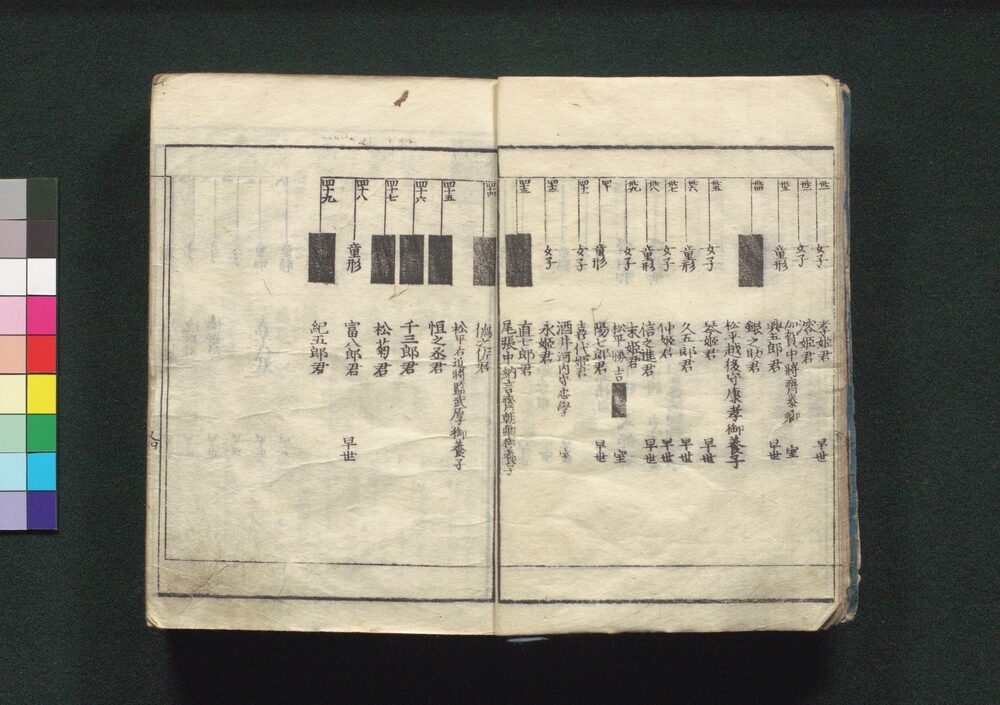 卅一 女子 孝姫君 早世
卅二 女子 溶姫君
加賀中將齊泰卿 室
卅三 童形 興五郎君 早世
卅四 銀之助君
松平越後守康孝御養子
卅五 女子 琴姫君 早世
卅六 童形 久五郎君 早世
卅七 女子 仲姫君 早世
卅八 童形 信之進君 早世
卅九 女子 末姫君
松平勝吉 室
四十 童形 陽七郎君 早世
四十一 女子 喜代姫君
酒井河内守忠學 室
四十二 女子 永姫君
四十三 直七郎君
尾張中納言齊朝卿御養子
四十四 徳之佐君
松平右近將監武厚御養子
四十五 恒之丞君
四十六 千三郎君
四十七 松菊君
四十八 童形 富八郎君 早世
四十九 紀五郎君